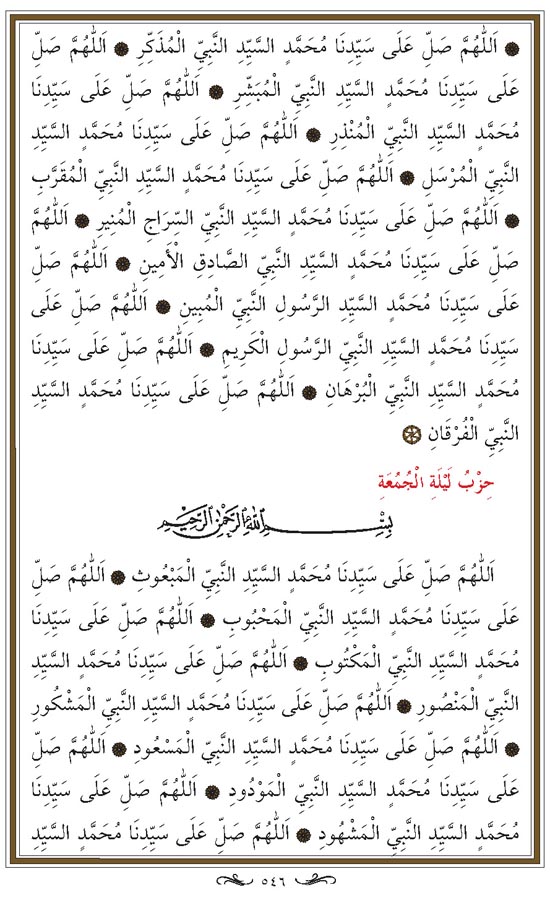 ❁ اَللّٰهُمَّ صَلِّ عَلَى سَيِّدِنَا مُحَمَّدٍ السَّيِّدِ النَّبِيِّ الْمُذَكِّرِ ❁ اَللّٰهُمَّ صَلِّ
عَلَى سَيِّدِنَا مُحَمَّدٍ السَّيِّدِ النَّبِيِّ الْمُبَشِّرِ ❁ اَللّٰهُمَّ صَلِّ عَلَى سَيِّدِنَا
مُحَمَّدٍ السَّيِّدِ النَّبِيِّ الْمُنْذِرِ ❁ اَللّٰهُمَّ صَلِّ عَلَى سَيِّدِنَا مُحَمَّدٍ السَّيِّدِ
النَّبِيِّ الْمُرْسَلِ ❁ اَللّٰهُمَّ صَلِّ عَلَى سَيِّدِنَا مُحَمَّدٍ السَّيِّدِ النَّبِيِّ الْمُقَرَّبِ
❁ اَللّٰهُمَّ صَلِّ عَلَى سَيِّدِنَا مُحَمَّدٍ السَّيِّدِ النَّبِيِّ السِّرَاجِ الْمُنِيرِ ❁ اَللّٰهُمَّ
صَلِّ عَلَى سَيِّدِنَا مُحَمَّدٍ السَّيِّدِ النَّبِيِّ الصَّادِقِ الْأَمِينِ ❁ اَللّٰهُمَّ صَلِّ
عَلَى سَيِّدِنَا مُحَمَّدٍ السَّيِّدِ الرَّسُولِ النَّبِيِّ الْمُبِينِ ❁ اَللّٰهُمَّ صَلِّ عَلَى
سَيِّدِنَا مُحَمَّدٍ السَّيِّدِ النَّبِيِّ الرَّسُولِ الْكَرِيمِ ❁ اَللّٰهُمَّ صَلِّ عَلَى سَيِّدِنَا
مُحَمَّدٍ السَّيِّدِ النَّبِيِّ الْبُرْهَانِ ❁ اَللّٰهُمَّ صَلِّ عَلَى سَيِّدِنَا مُحَمَّدٍ السَّيِّدِ
النَّبِيِّ الْفُرْقَانِ ❁
حِزْبُ لَيْلَةِ الْجُمُعَةِ
بِسْمِ اللّٰهِ الرَّحْمٰنِ الرَّحِيمِ
اَللّٰهُمَّ صَلِّ عَلَى سَيِّدِنَا مُحَمَّدٍ السَّيِّدِ النَّبِيِّ الْمَبْعُوثِ ❁ اَللّٰهُمَّ صَلِّ
عَلَى سَيِّدِنَا مُحَمَّدٍ السَّيِّدِ النَّبِيِّ الْمَحْبُوبِ ❁ اَللّٰهُمَّ صَلِّ عَلَى سَيِّدِنَا
مُحَمَّدٍ السَّيِّدِ النَّبِيِّ الْمَكْتُوبِ ❁ اَللّٰهُمَّ صَلِّ عَلَى سَيِّدِنَا مُحَمَّدٍ السَّيِّدِ
النَّبِيِّ الْمَنْصُورِ ❁ اَللّٰهُمَّ صَلِّ عَلَى سَيِّدِنَا مُحَمَّدٍ السَّيِّدِ النَّبِيِّ الْمَشْكُورِ
❁ اَللّٰهُمَّ صَلِّ عَلَى سَيِّدِنَا مُحَمَّدٍ السَّيِّدِ النَّبِيِّ الْمَسْعُودِ ❁ اَللّٰهُمَّ صَلِّ
عَلَى سَيِّدِنَا مُحَمَّدٍ السَّيِّدِ النَّبِيِّ الْمَوْدُودِ ❁ اَللّٰهُمَّ صَلِّ عَلَى سَيِّدِنَا
مُحَمَّدٍ السَّيِّدِ النَّبِيِّ الْمَشْهُودِ ❁ اَللّٰهُمَّ صَلِّ عَلَى سَيِّدِنَا مُحَمَّدٍ السَّيِّدِ
٥٤٦